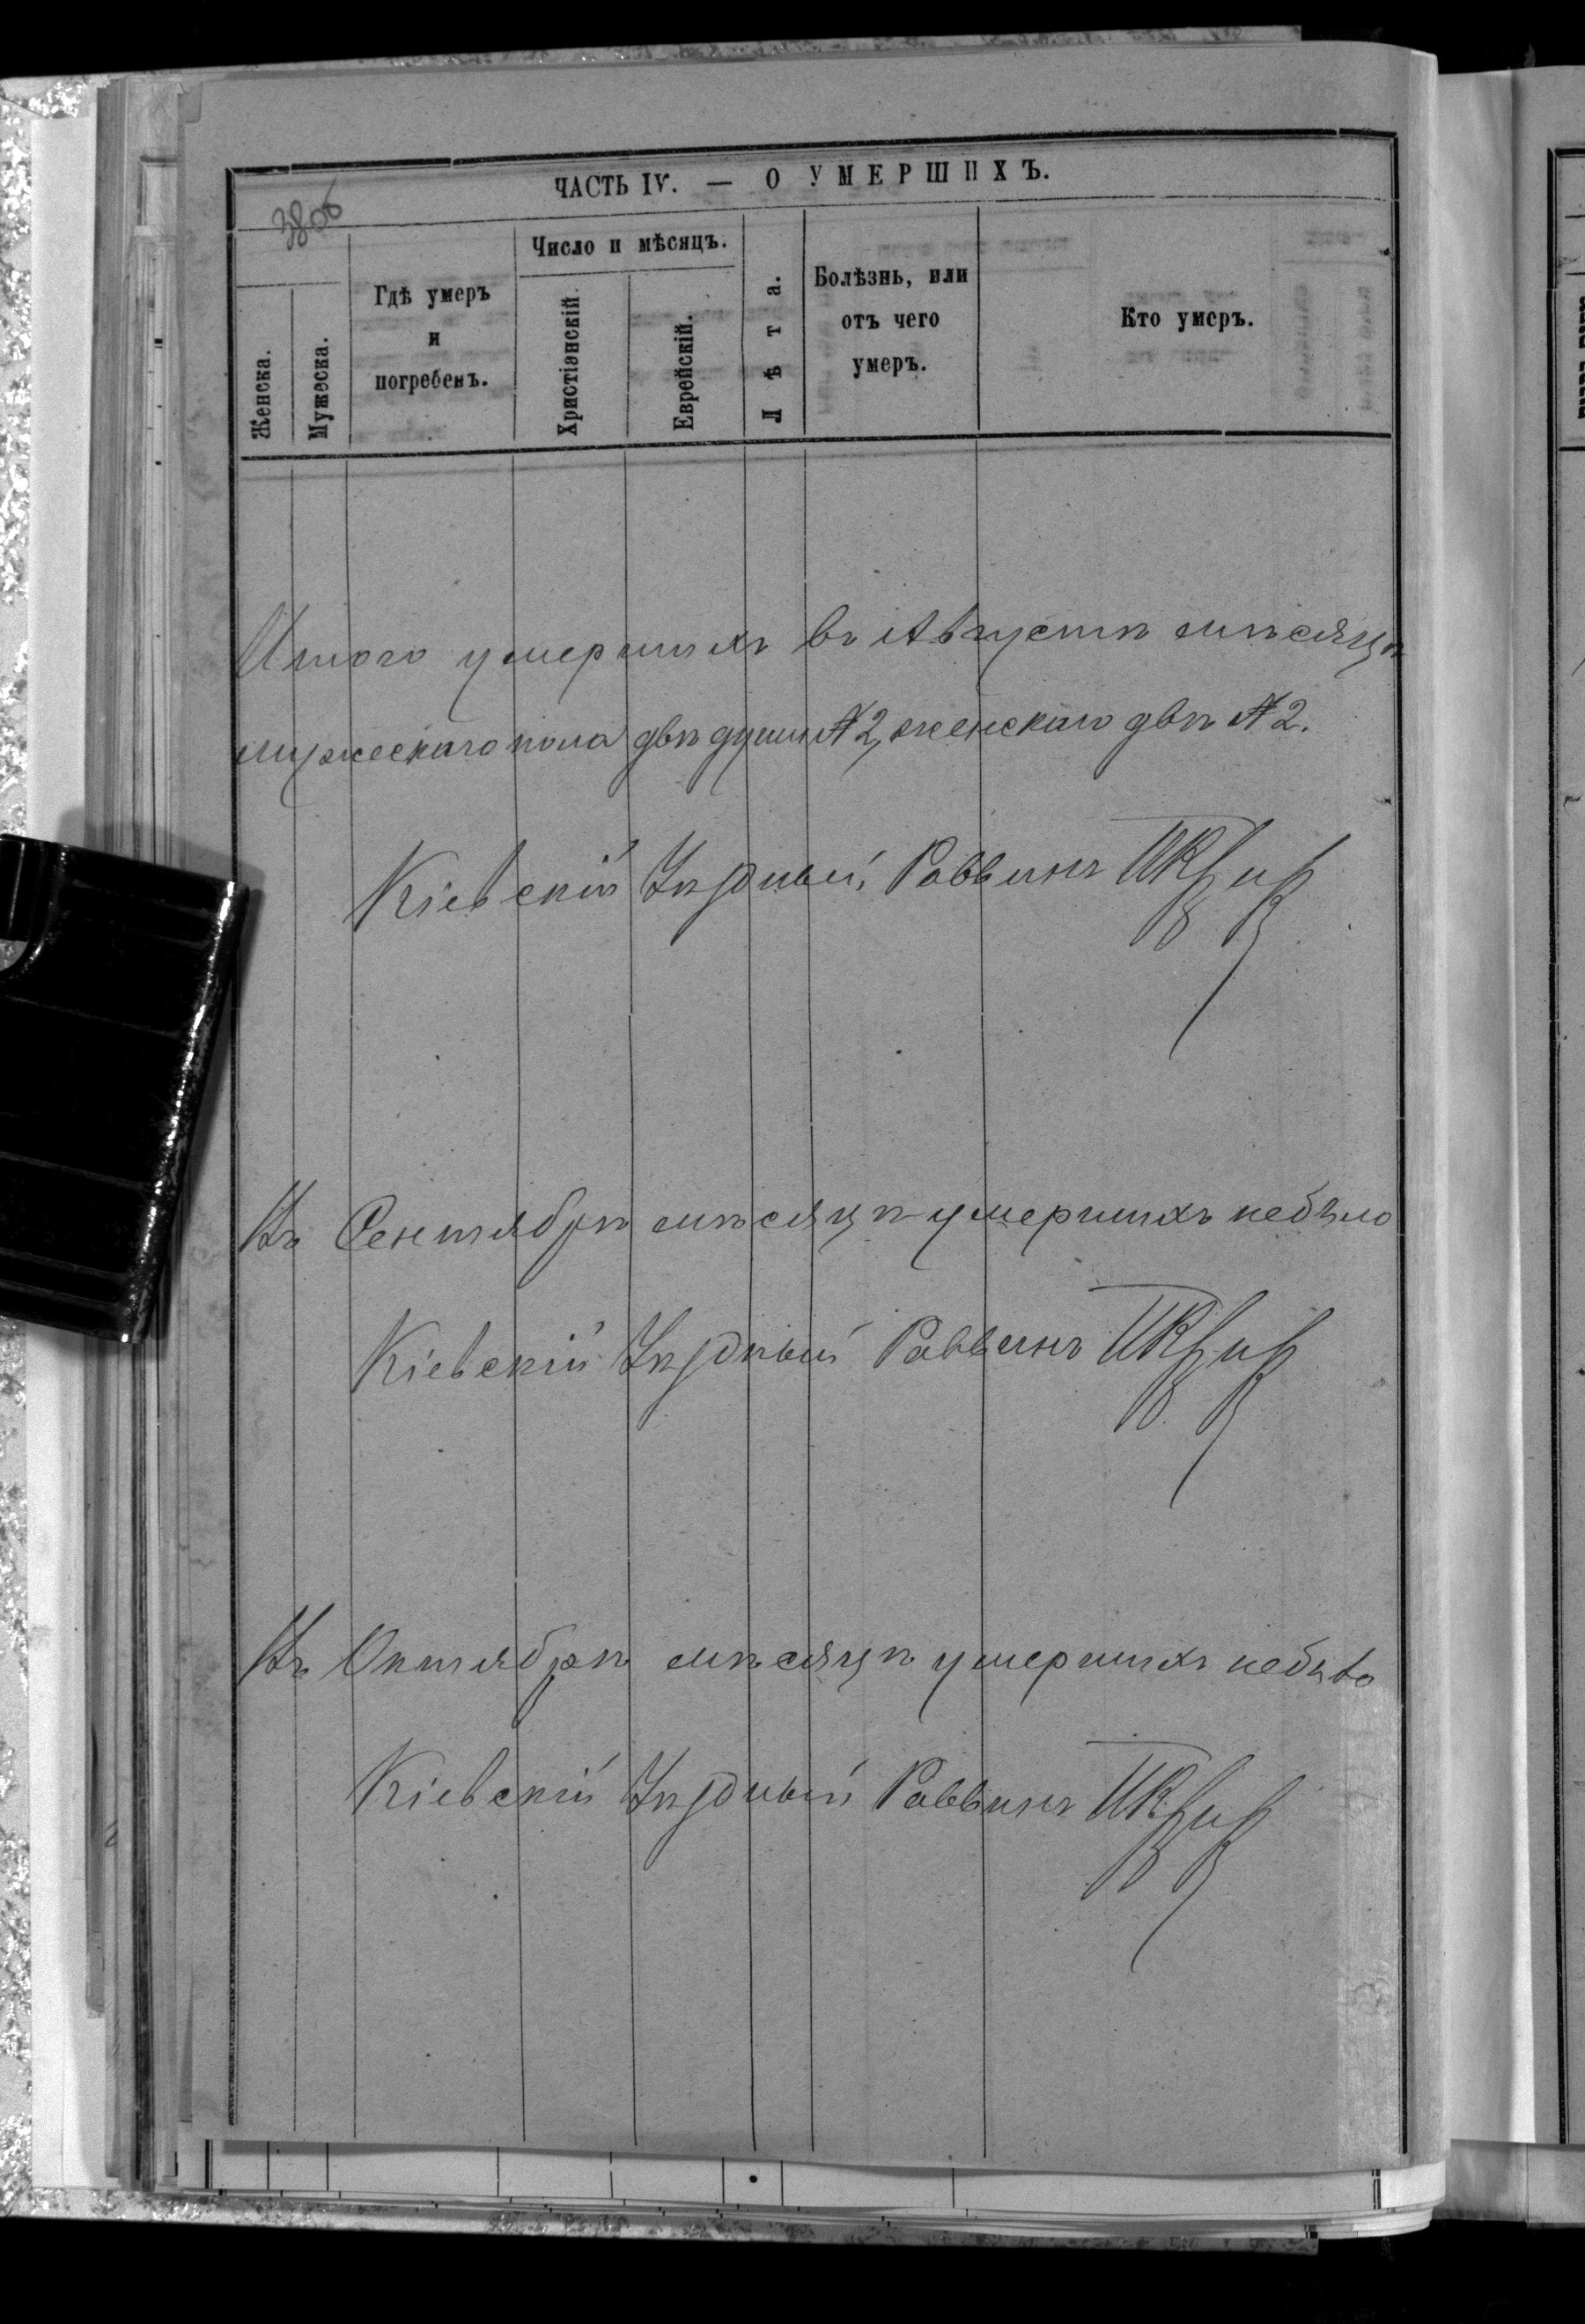 ЧАСТЬ IV. — О УМЕРШИХЪ.
380б
Женска.
Мужеска.
Гдѣ умеръ
и
погребенъ.
Число и мѣсяцъ.
Христіанскій.
Еврейскій.
Лѣта.
Болѣзнь, или
отъ чего
умеръ.
Кто умеръ.
Итого умершихъ въ Августѣ мѣсяцѣ
мужескаго пола двѣ души № 2, женскаго двѣ № 2.
Кіевскій Уѣздный Раввинъ
Въ Сентябрѣ мѣсяцѣ умершихъ небыло
Кіевскій Уѣздный Раввинъ
Въ Октябрѣ мѣсяцѣ умершихъ небыло
Кіевскій Уѣздный Раввинъ